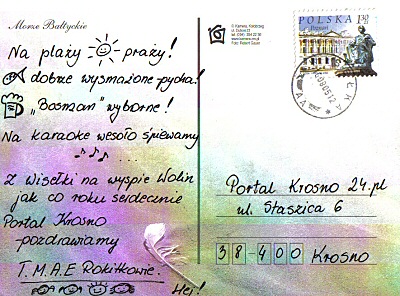 Morze Bałtyckie
Na plaży praży!
dobrze wysmażone-pycha!
„Bosman" wyborne!
Na karaoke wesoło śpiewamy
...
Z Wisełki na wyspie Wolin
jak co roku serdecznie
Portal Krosno
-pozdrawiamy
T.M.A.E Rokitkowie.
Hej!
POLSKA 1,30 ZŁ
Portal Krosno 24.pl
ul. Staszica 6
38-400 Krosno